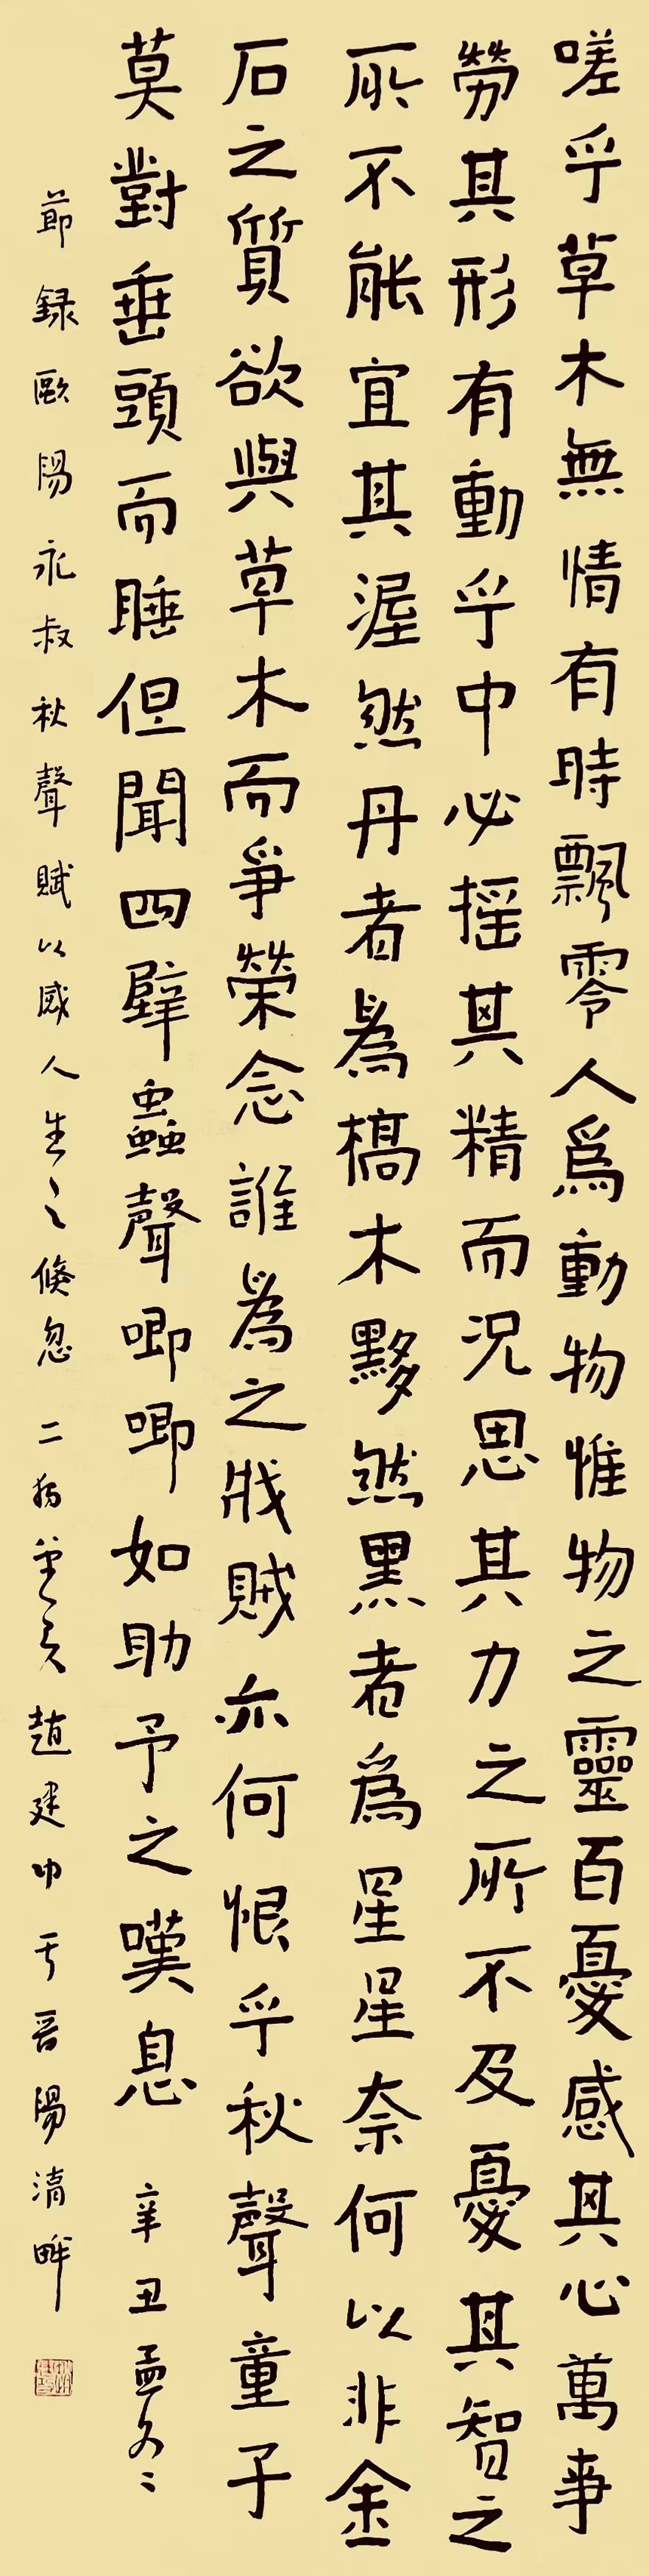 嗟乎草木無情有時飄零人爲動物惟物之靈百憂感其心萬事
勞其形有動乎中必摇其精而況思其力之所不及憂其智之
所不能宜其渥然丹者為槁木黟然黑者為星星奈何以非金
石之質欲與草木而爭榮念誰為之戕賊亦何恨乎秋聲童子
莫對垂頭而睡但聞四壁蟲聲唧唧如助予之嘆息 辛丑孟冬
節録歐陽永叔秋聲賦以感人生之倏忽 二 趙建中于晋陽清畔